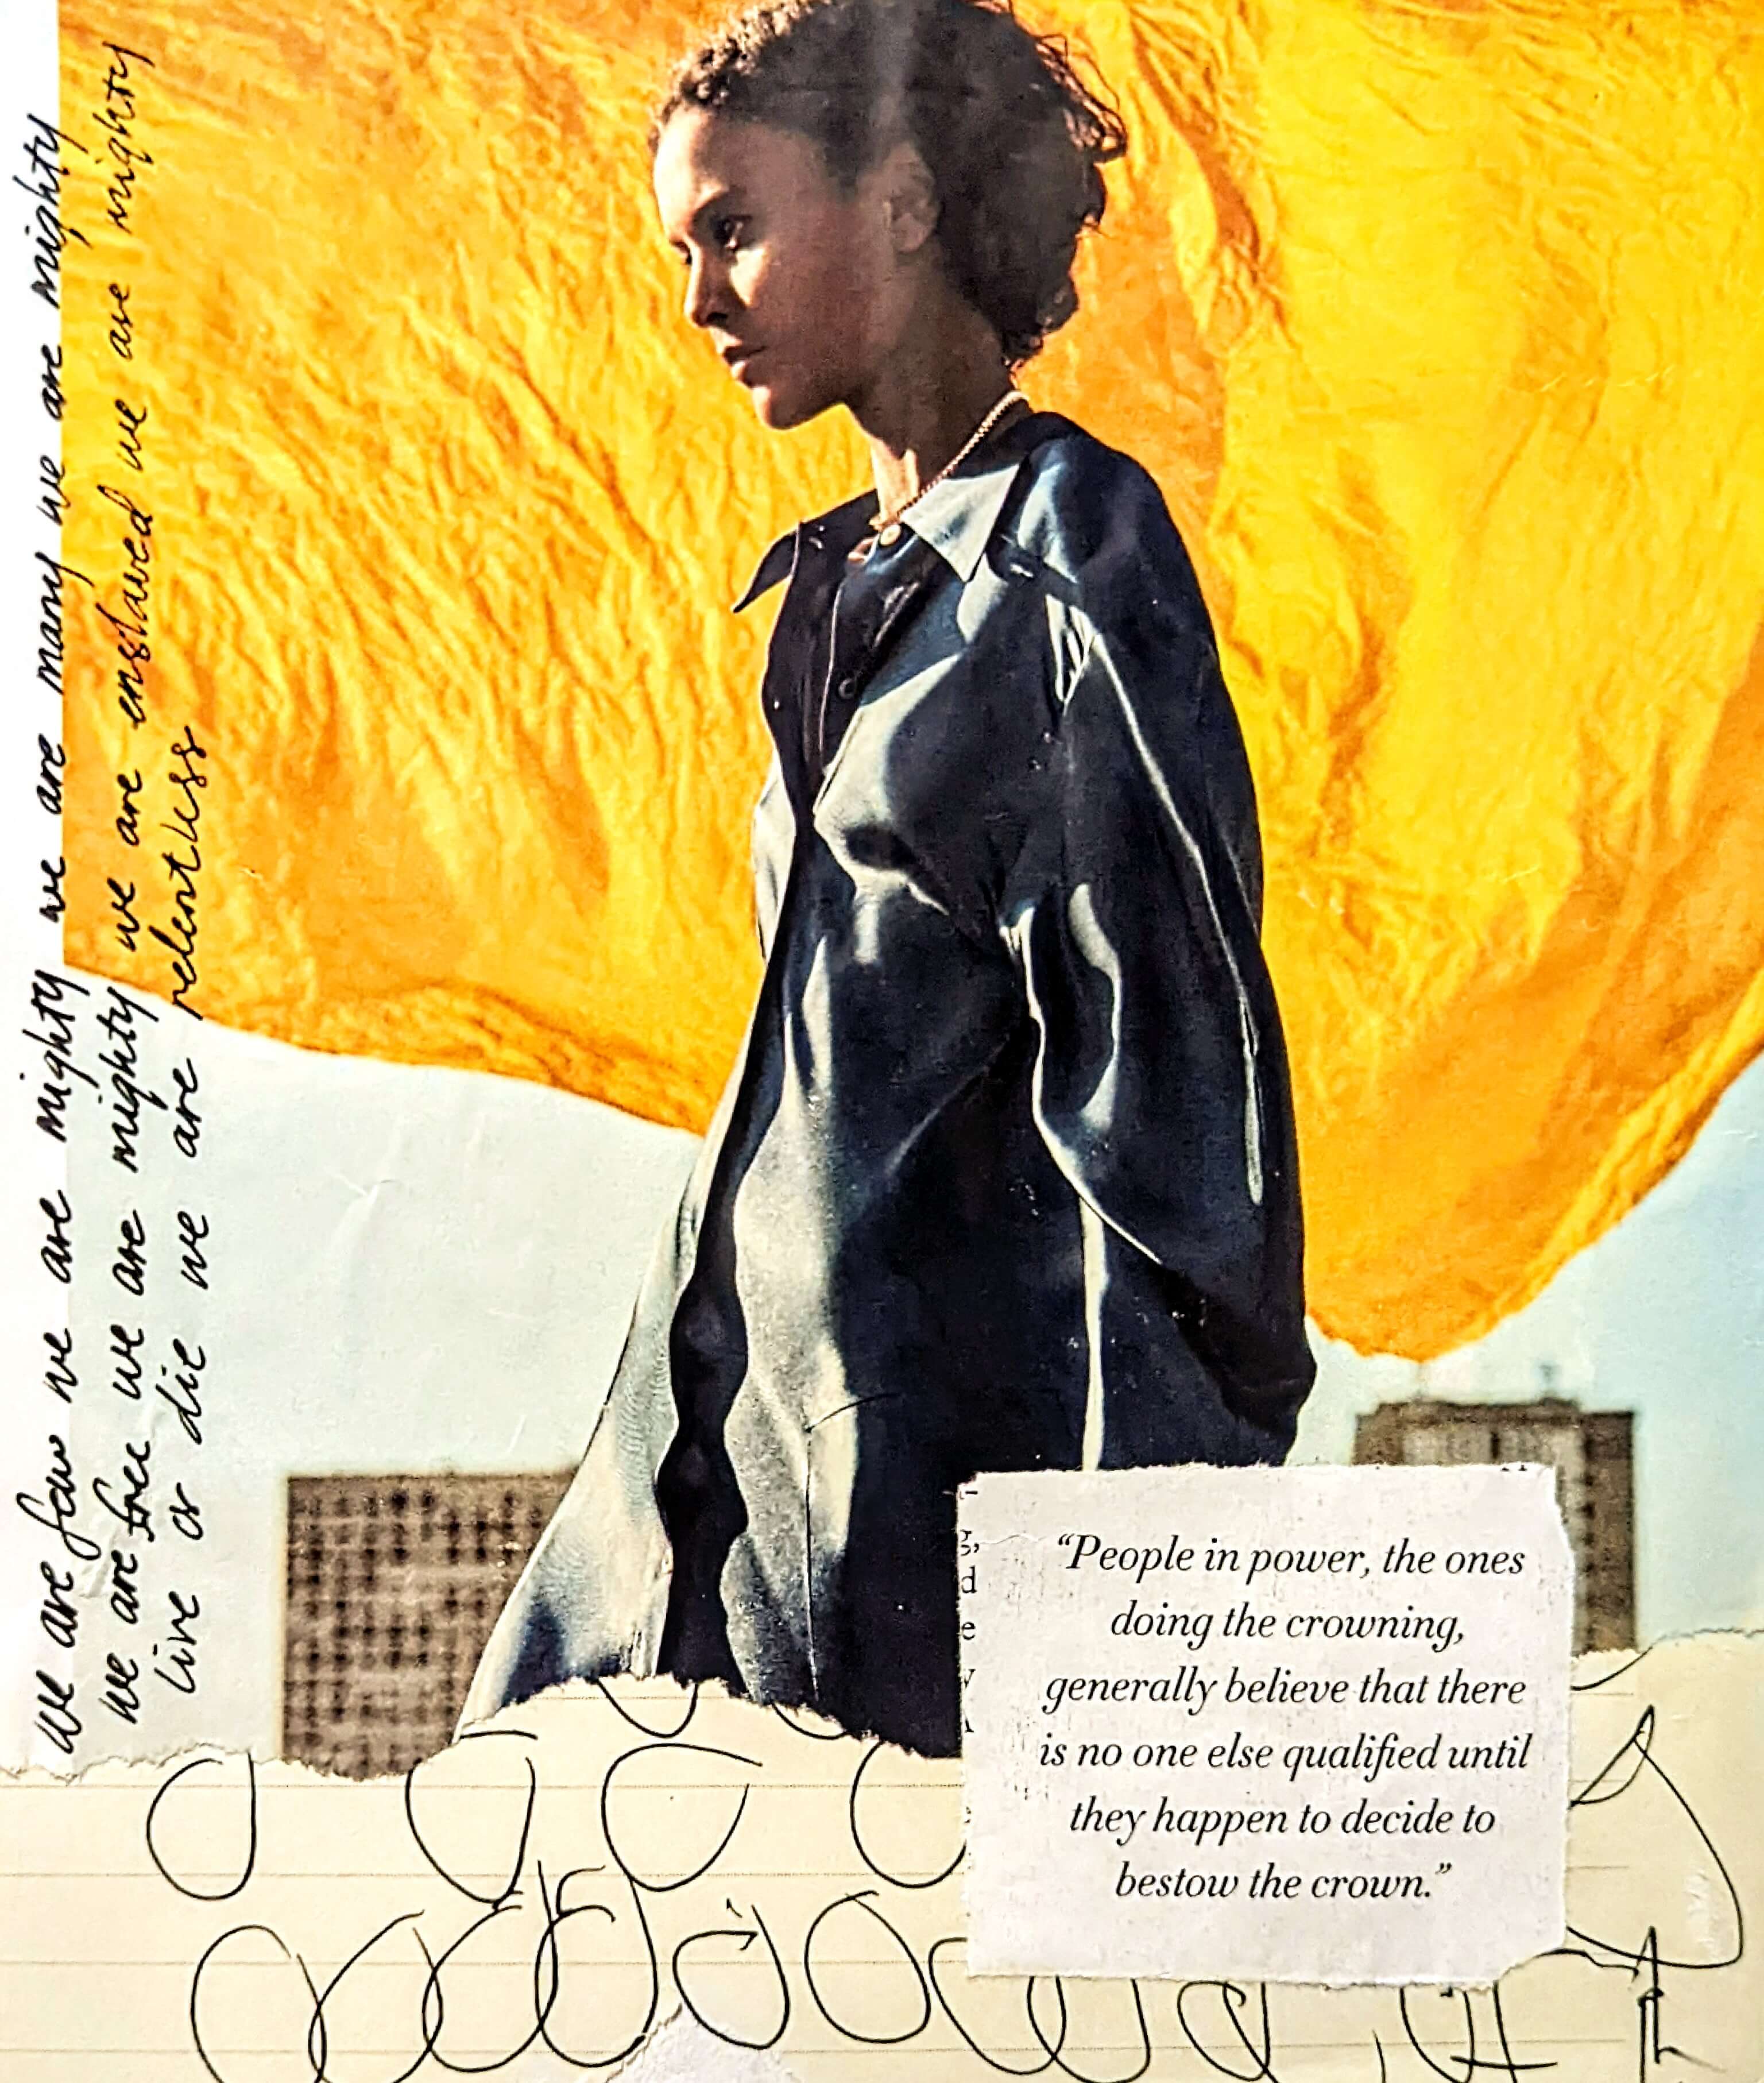 we are few we are mighty we are many we are mighty
we are free we are mighty we are enslaved we are mighty
live or die we are relentless
“People in power, the ones
doing the crowning,
generally believe that there
is no one else qualified until
they happen to decide to
bestow the crown.”
g,
d
e
y